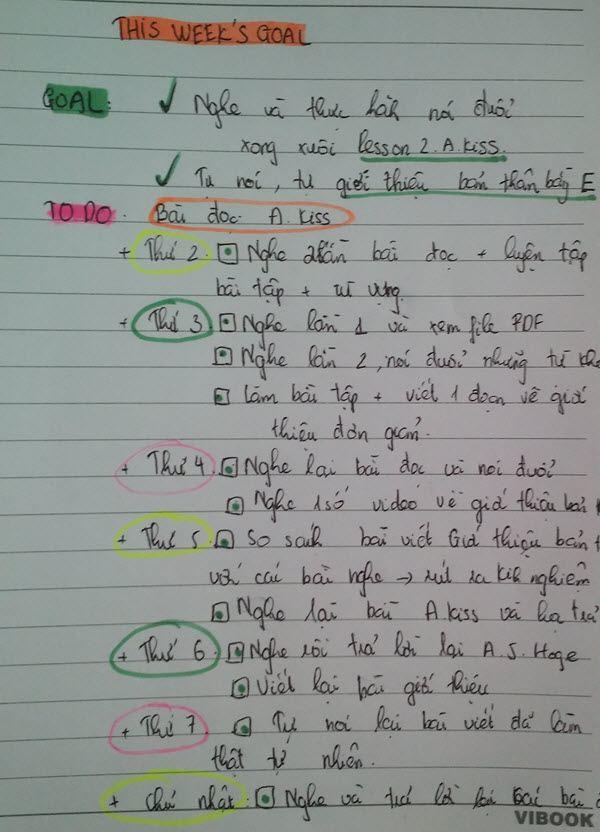 THIS WEEK'S GOAL
GOAL: ✓ Nghe và thực hành nói đuổi
xong xuôi lesson 2. A. Kiss.
✓ Tự nói, tự giới thiệu bản thân bằng E
TO DO. Bài đọc: A. Kiss
+ Thứ 2. Nghe 2 lần bài đọc + luyện tập
bài tập + từ vựng.
+ Thứ 3 Nghe lần 1 và xem file PDF
Nghe lần 2, nói đuổi những từ
Làm bài tập + viết 1 đoạn về giới
thiệu đơn giản.
+ Thứ 4. Nghe lại bài đọc và nói đuổi
Nghe 1 số video về giới thiệu bản
+ Thứ 5 So sánh bài viết Giới thiệu bản
với các bài nghe → rút ra kinh nghiệm
Nghe lại bài A. Kiss và
+ Thứ 6. Nghe rồi trả lời lại A. J. Hoge
Viết lại bài giới thiệu
+ Thứ 7 Tự nói lại bài viết đã làm
thật tự nhiên.
+ Chủ nhật. Nghe và trả lời bài
VIBOOK